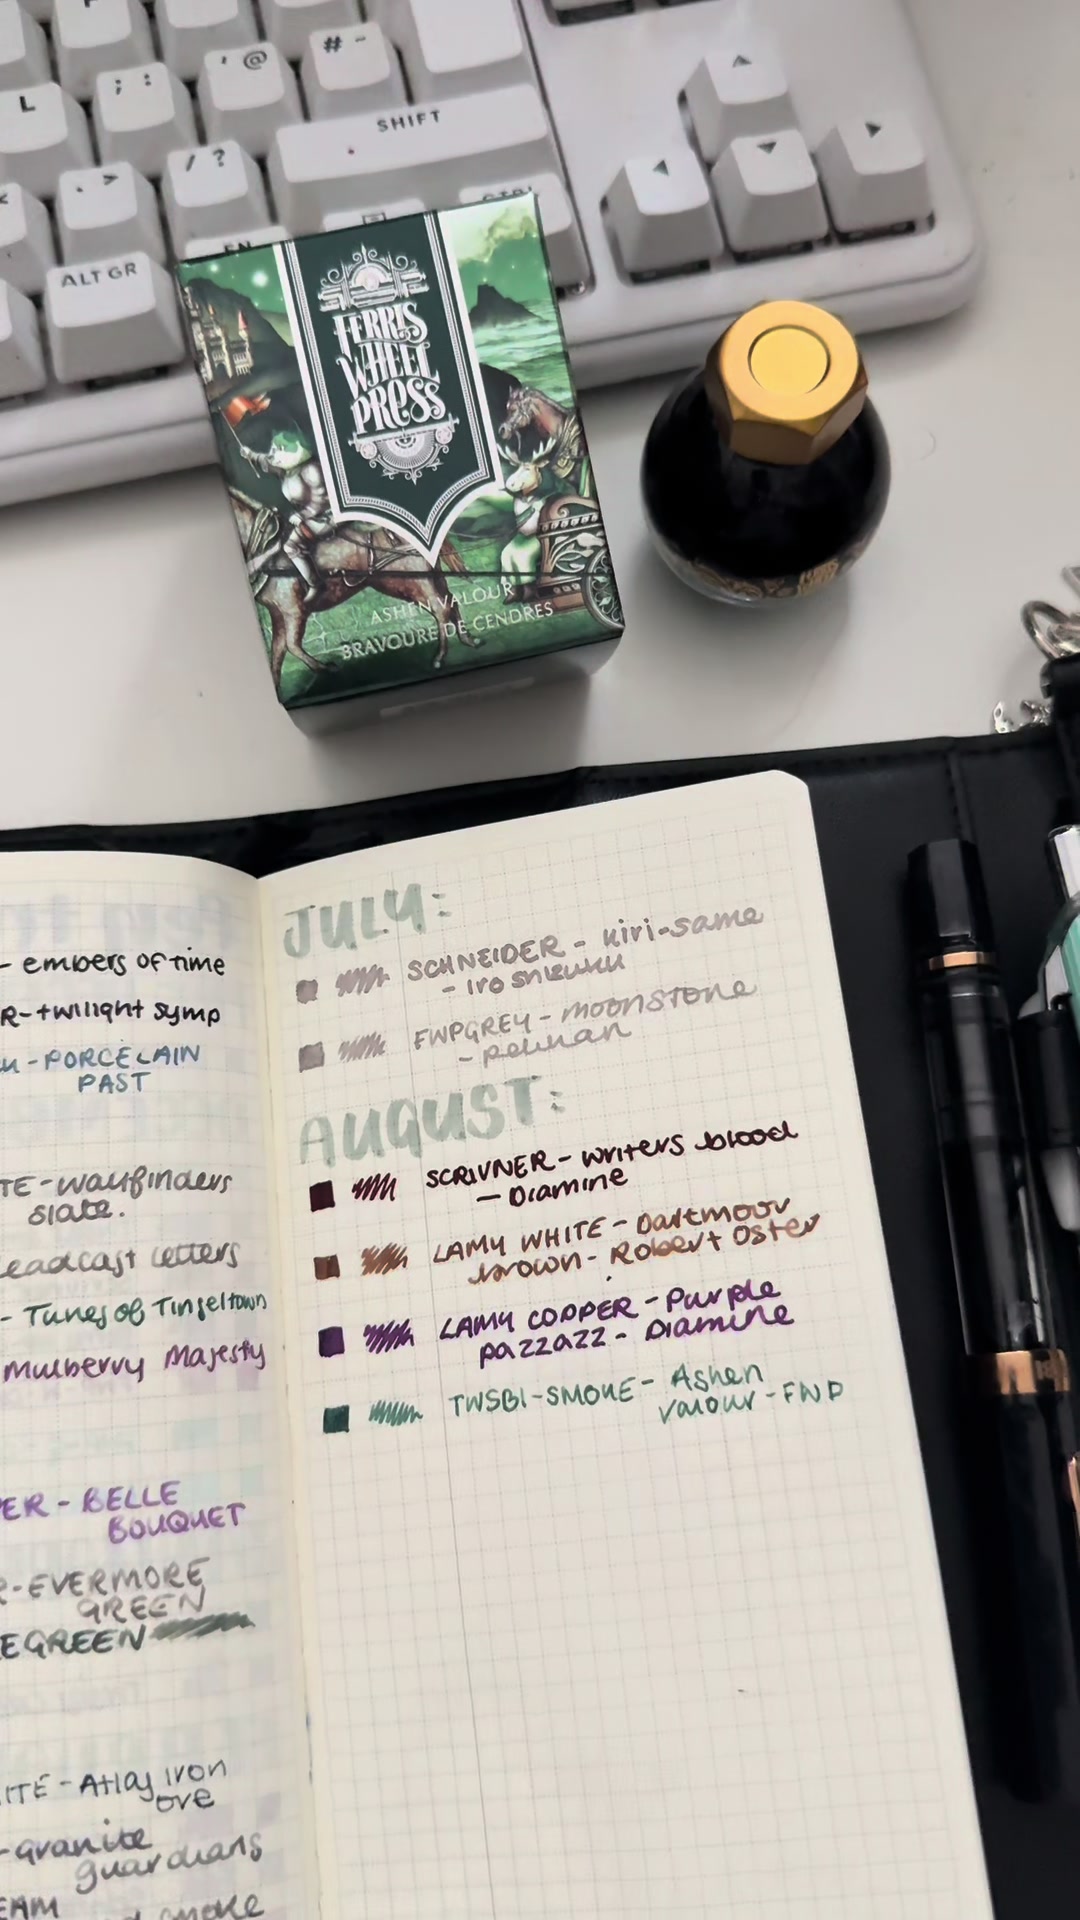 L
; :
' @
# ~
. >
/ ?
SHIFT
CTRL
FN
ALT GR
FERRIS
WHEEL
PRESS
ASHEN VALOUR
BRAVOURE DE CENDRES
- embers of time
R - twilight symp
- PORCELAIN
PAST
TE - wayfinders
slate.
eadcast letters
- Tunes of Tinseltown
Mulberry Majesty
PER - BELLE
BOUQUET
R - EVERMORE
GREEN
EGREEN
ITE - Atlas iron
ore
- granite
guardians
EAM
smoke
JULY:
SCHNEIDER - kiri-same
- iroshizuku
FWPGREY - moonstone
- pelikan
AUGUST:
SCRIVNER - writers blood
- Diamine
LAMY WHITE - Dartmoor
brown - Robert Oster
LAMY COPPER - Purple
pazzazz - Diamine
TWSBI - SMOKE - Ashen
valour - FWP